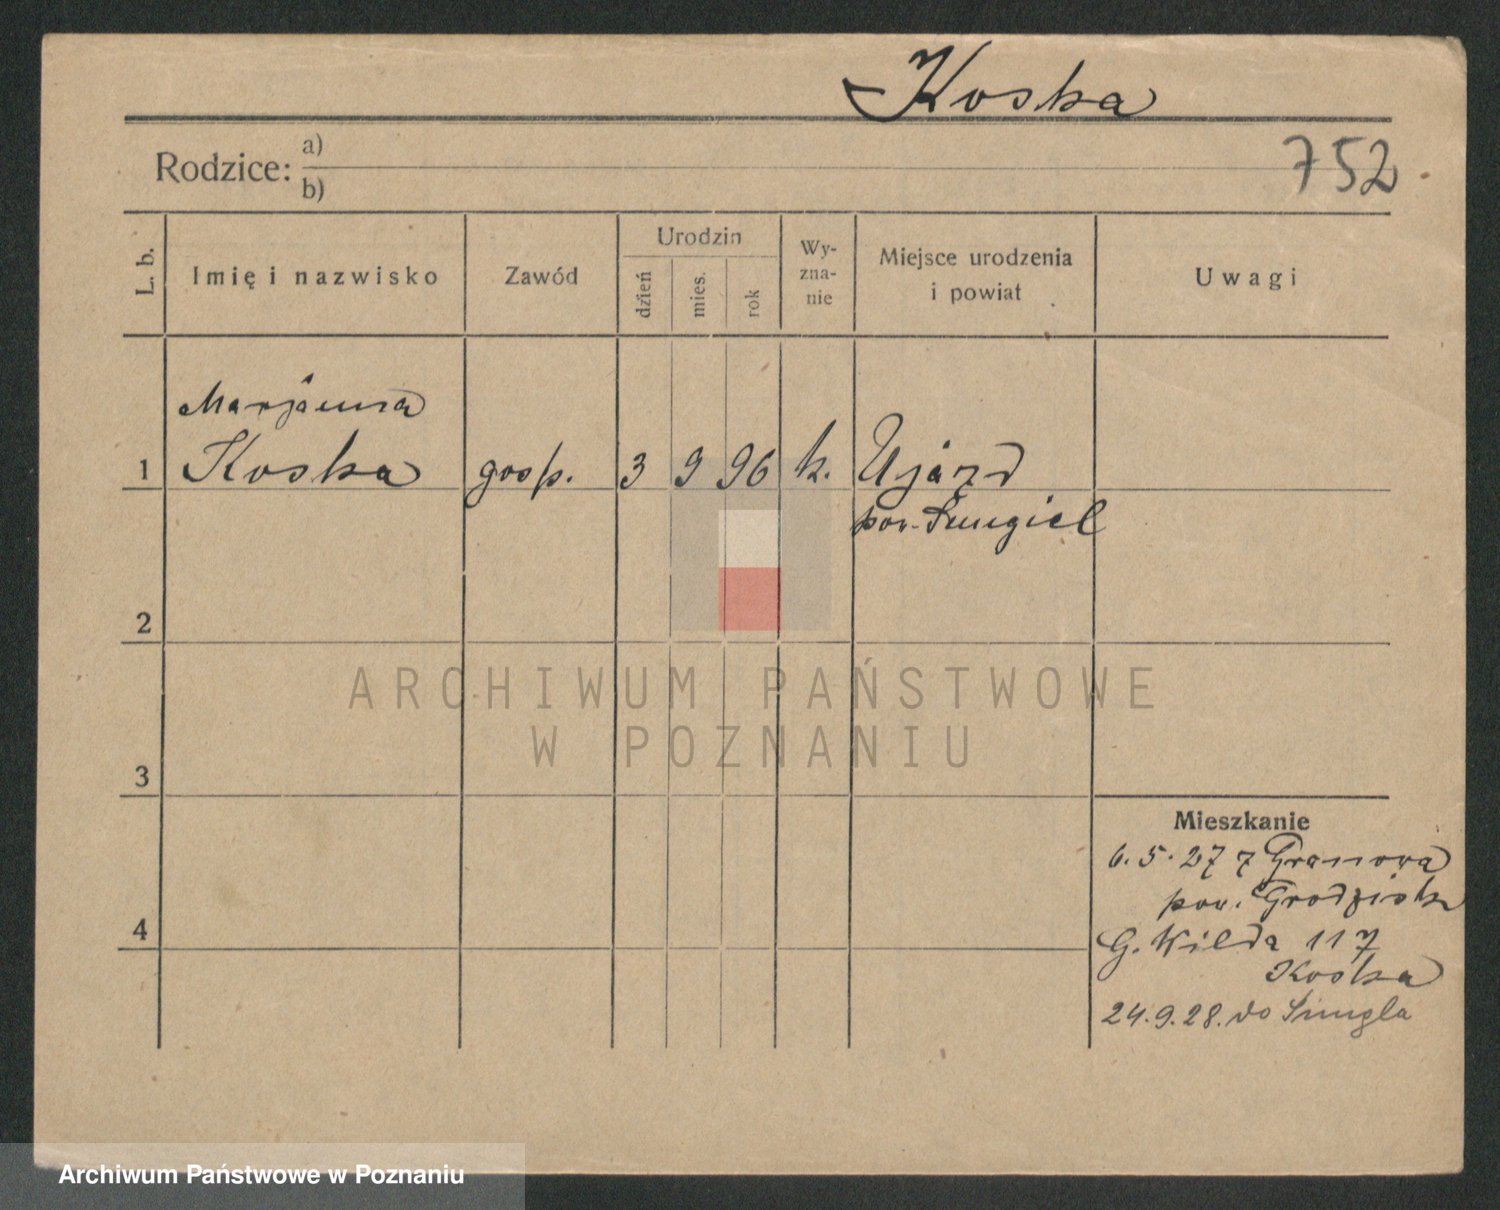 Koska
752
Rodzice: a)
b)
L. b.
Imię i nazwisko
Zawód
Urodzin
dzień
mies.
rok
Wy-
zna-
nie
Miejsce urodzenia
i powiat
Uwagi
Marjanna
1 Koska gosp. 3 9 96 k. Ujazd
pow. Śmigiel
2
ARCHIWUM PAŃSTWOWE
W POZNANIU
3
Mieszkanie
6.5.27 z Granowa
pow. Grodzisk
4
G. Wilda 117
Koska
24.9.28. do Śmigla
Archiwum Państwowe w Poznaniu